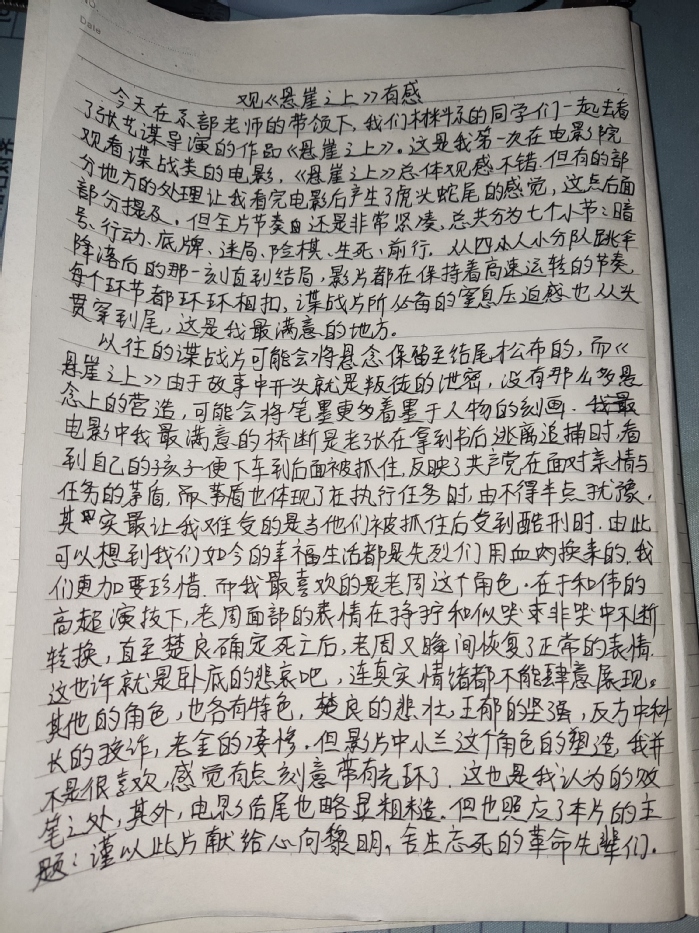 NO.
Date
观《悬崖之上》有感
今天在系部老师的带领下，我们材料系的同学们一起去看
了张艺谋导演的作品《悬崖之上》。这是我第一次在电影院
观看谍战类的电影，《悬崖之上》总体观感不错.但有的部
分地方的处理让我看完电影后产生了虎头蛇尾的感觉，这点后面
部分提及.但全片节奏还是非常紧凑，总共分为七个小节：暗
号、行动、底牌、迷局、险棋、生死、前行.从四人小分队跳伞
降落后的那一刻直到结局，影片都在保持着高速运转的节奏，
每个环节都环环相扣，谍战片所必备的窒息压迫感也从头
贯穿到尾，这是我最满意的地方.
以往的谍战片可能会将悬念保留至结尾才公布的，而《
悬崖之上》由于故事中开头就是叛徒的泄密，没有那么多悬
念上的营造，可能会将笔墨更多着墨于人物的刻画.我最
电影中我最满意的桥断是老张在拿到书后逃离追捕时，看
到自己的孩子便下车到后面被抓住，反映了共产党在面对亲情与
任务的茅盾，而茅盾也体现了在执行任务时，由不得半点犹豫，
其实最让我难受的是当他们被抓住后受到酷刑时.由此
可以想到我们如今的幸福生活都是先烈们用血肉换来的.我
们更加要珍惜.而我最喜欢的是老周这个角色.在于和伟的
高超演技下，老周面部的表情在狰狞和似哭非哭中不断
转换，直至楚良确定死亡后，老周又瞬间恢复了正常的表情.
这也许就是卧底的悲哀吧，连真实情绪都不能肆意展现。
其他的角色，也各有特色，楚良的悲壮，王郁的坚强，反方中科
长的狡诈，老金的凄惨.但影片中小兰这个角色的塑造，我并
不是很喜欢，感觉有点刻意带有光环了.这也是我认为的败
笔之处，其外，电影后尾也略显粗糙.但也照应了本片的主
题：谨以此片献给心向黎明，舍生忘死的革命先辈们.